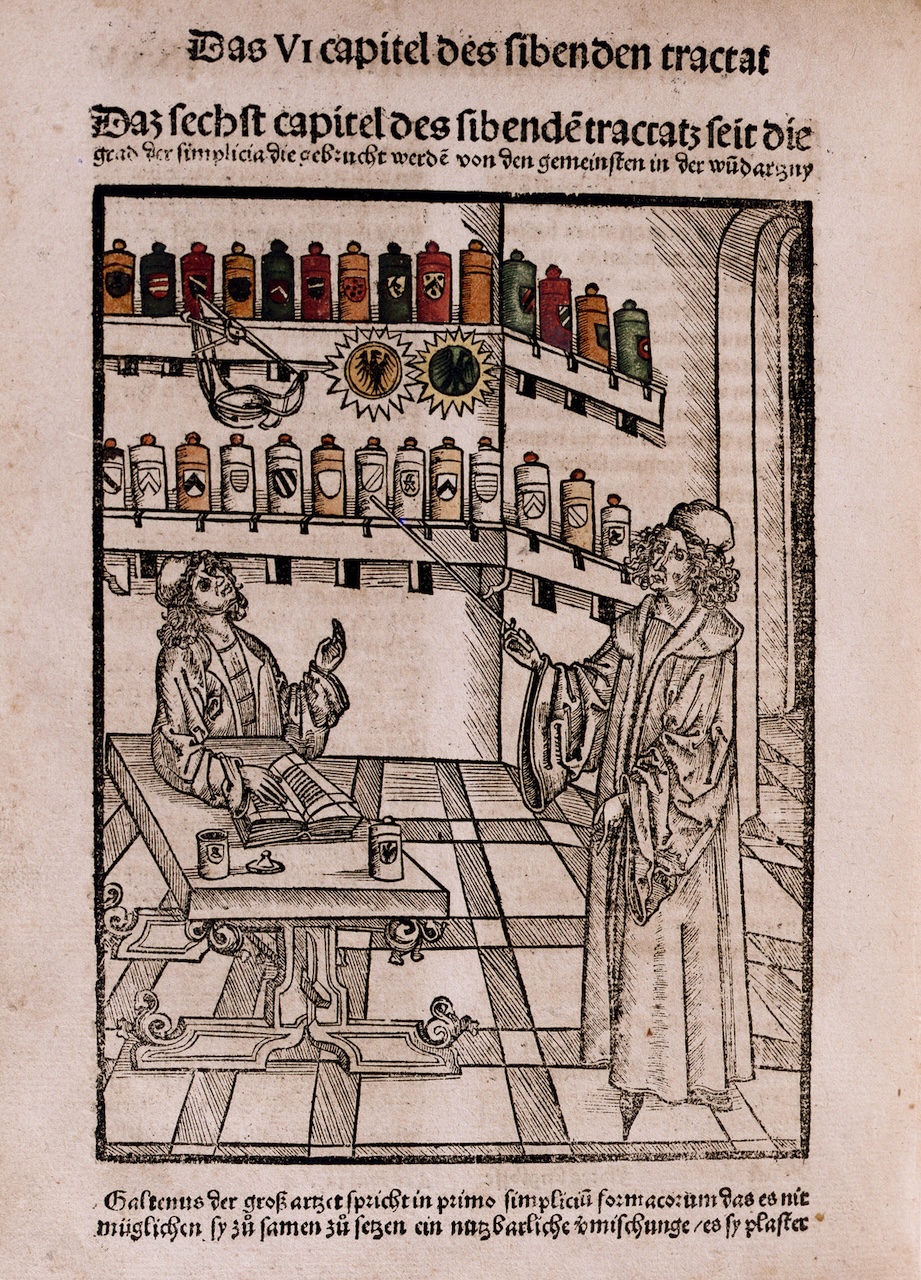 Das VI capitel des sibenden tractat
Daz sechst capitel des sibendē tractatz seit die
grad der simplicia die gebrucht werdē von den gemeinsten in der wūdartzny
Galienus der groß artzet spricht in primo simpliciū formacorum das es nit
müglichen sy zů samen zů setzen ein nutzbarliche vmischunge / es sy plaster